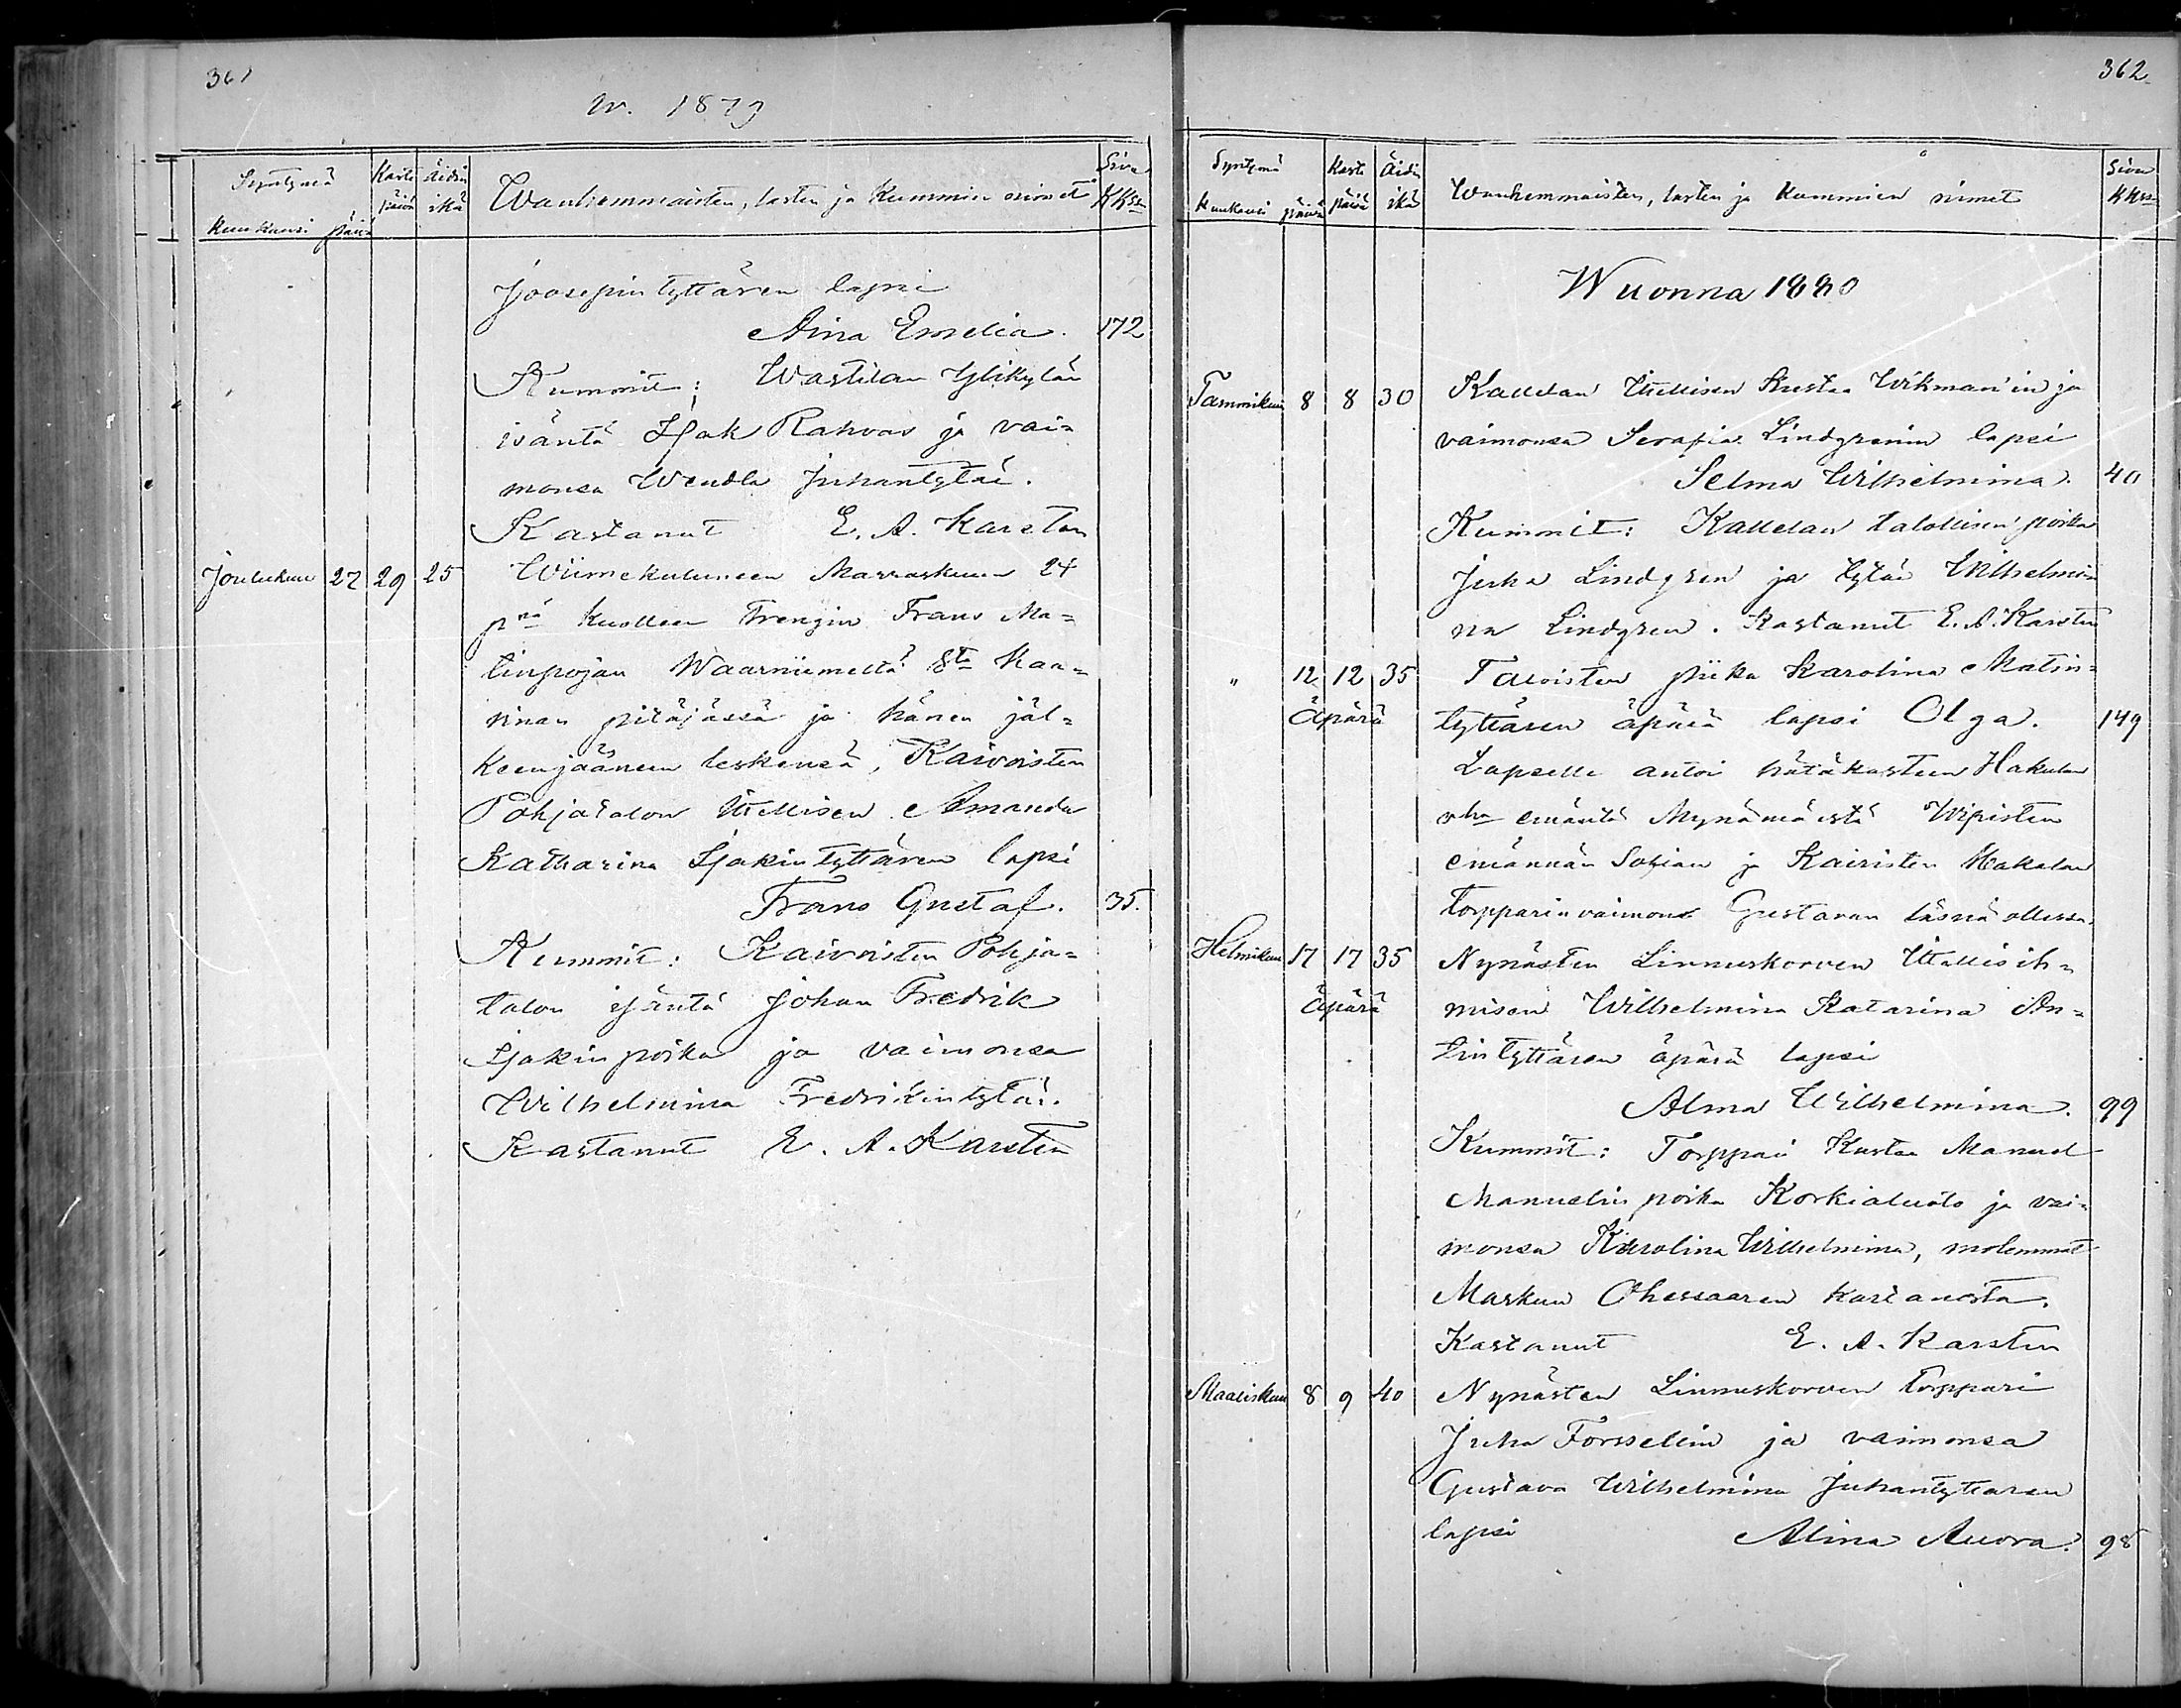 361
w. 1879
Syntymä Kuukausi päivä Kaste päivä Äidin ikä Wanhemmaisten, lasten ja Kummien nimet Sivu KKssa
Joosepintyttären lapsi
Aina Emelia. 172
Kummit: Wastilan Ylikylän
isäntä Isak Rahvas ja vai=
monsa Wendla Juhantytär.
Kastanut E. A. Karsten
Joulukuu 27 29 25 Wiimekuluneen Marraskuun 24
pnä kuolleen Trengin Frans Ma=
tinpojan Waarniemeltä? Sta Kaa=
rinan pitäjässä ja hänen jäl=
keenjääneen leskensä, Kaivoisten
Pohjatalon Itellisen Amanda
Katharina Isakintyttären lapsi
Frans Gustaf. 35.
Kummit: Kaivoisten Pohja=
talon isäntä Johan Fredrik
Isakinpoika ja vaimonsa
Wilhelmina Fredrikintytär.
Kastanut E. A. Karsten
362
Syntymä Kuukausi päivä Kaste päivä Äidin ikä Wanhemmaisten, lasten ja Kummien nimet Sivu KKssa
Wuonna 1880
Tammikuu 8 8 30 Kalletan Itellisen Kustaa Wikman'in ja
vaimonsa Serafia Lindgrenin lapsi
Selma Wilhelmina. 40
Kummit: Kalletan talollisen poika
Juha Lindgren ja tytär Wilhelmii
na Lindgren. Kastanut E. A. Karsten
" 12 12 35 Tavoisten piika Karolina Matin=
Äpärä tyttären äpärä lapsi Olga. 149
Lapselle antoi hätäkasteen Hakulan
vha emäntä Mynämäistä
emännän Sofian ja Kairisten Hakalan
torpparinvaimon Gustavan läsnä ollessa.
Helmikuu 17 17 35 Nynästen Linnuskorven Itellisih=
Äpärä misen Wilhelmina Katarina An=
tintyttären äpärä lapsi
Alma Wilhelmina. 99
Kummit: Torppari Kustaa Manuel
Manuelin poika Korkialuoto ja vai=
monsa Karolina Wilhelmina, molemmat
Maskun Ohessaaren kartanosta.
Kastanut E. A. Karsten
Maaliskuu 8 9 40 Nynästen Linnuskorven torppari
Juha Forsselin ja vaimonsa
Gustava Wilhelmina Juhantyttären
lapsi Alina Auora. 98